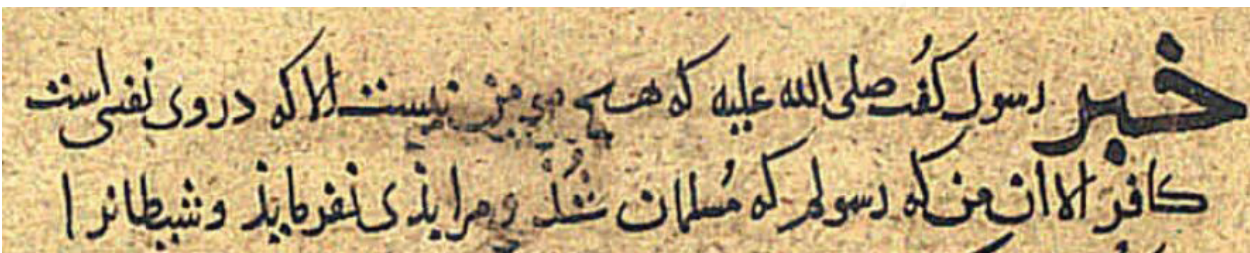 خبر رسول گفت صلی الله علیه که هیچ نیست الا که در وی نفسی است
کافر الا ان من که رسولم که مسلمان شد و مرا بذی نفرماید و شیطانرا